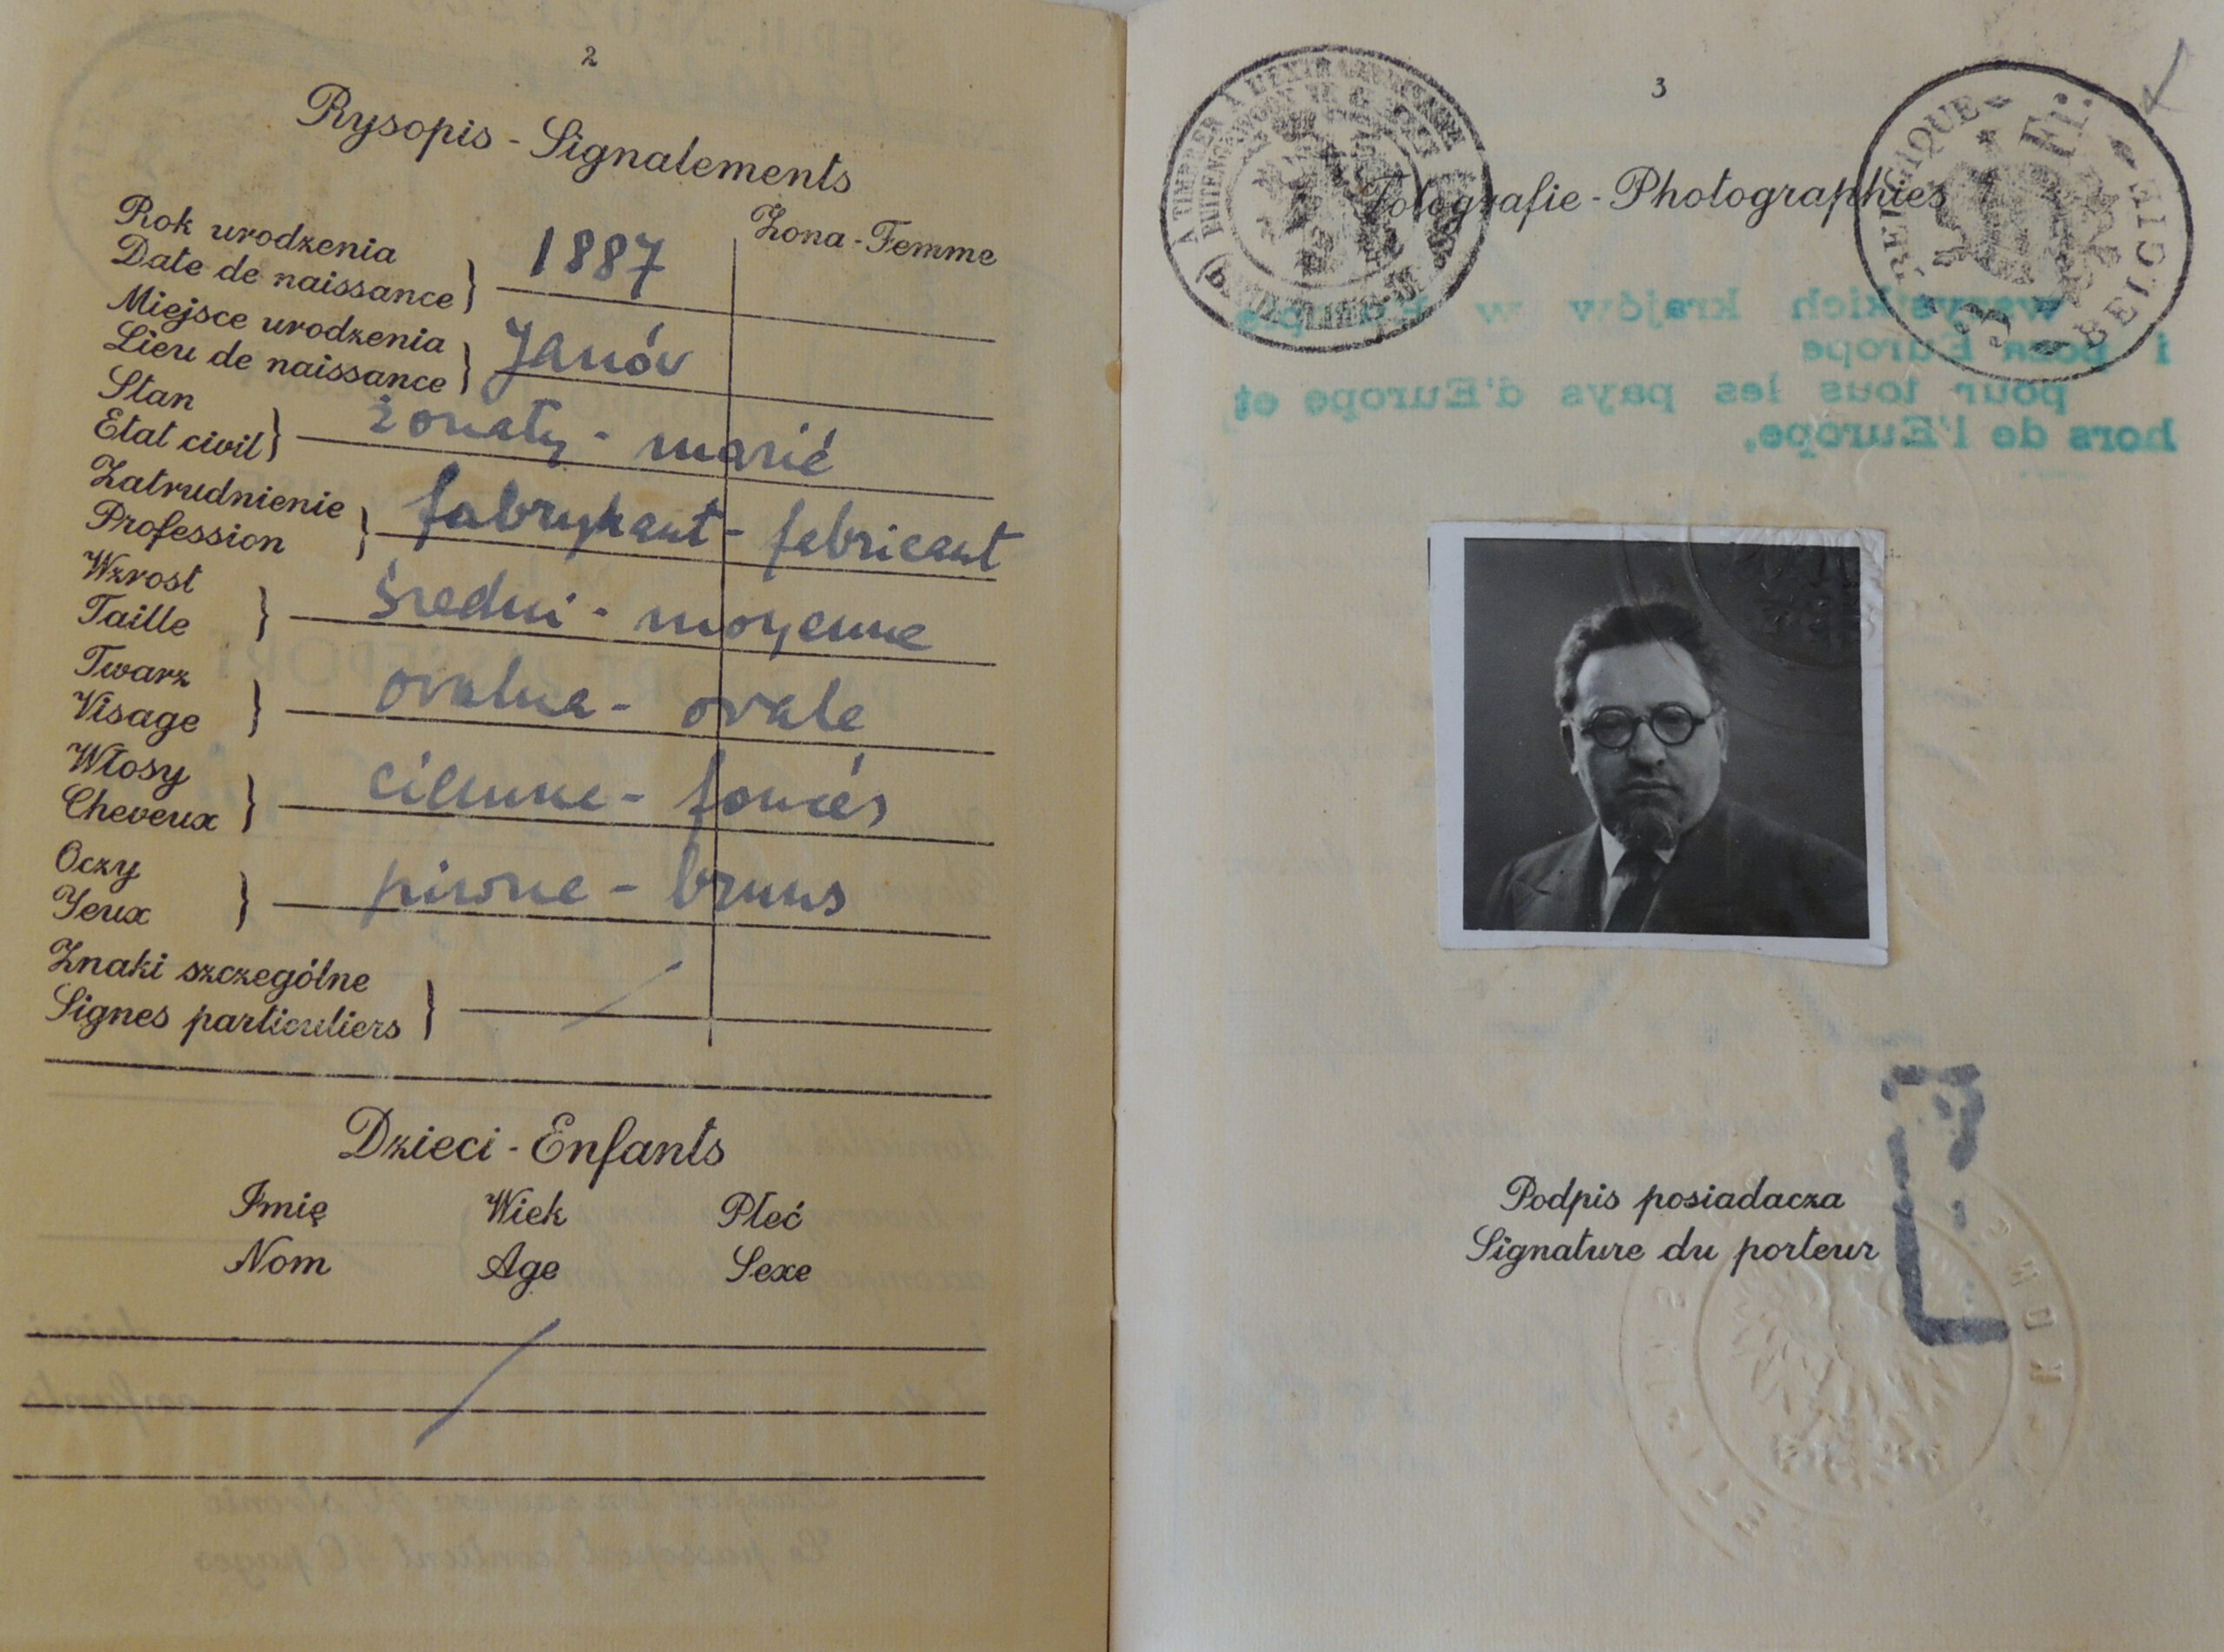 2
Rysopis - Signalements
Żona - Femme
Rok urodzenia
Date de naissance } 1887
Miejsce urodzenia
Lieu de naissance } Janów
Stan
Etat civil } żonaty - marié
Zatrudnienie
Profession } fabrykant - fabricant
Wzrost
Taille } średni - moyenne
Twarz
Visage } ovalna - ovale
Włosy
Cheveux } ciemne - foncés
Oczy
Yeux } piwne - bruns
Znaki szczególne
Signes particuliers }
Dzieci - Enfants
Imię Wiek Płeć
Nom Age Sexe
3
Fotografie - Photographies
A TIMBRER A L'EXTRA
BELGIQUE
3 Fr.
BELGIE
wszystkich krajów w Europie
i poza Europę
pour tous les pays d'Europe et
hors de l'Europe.
Podpis posiadacza
Signature du porteur